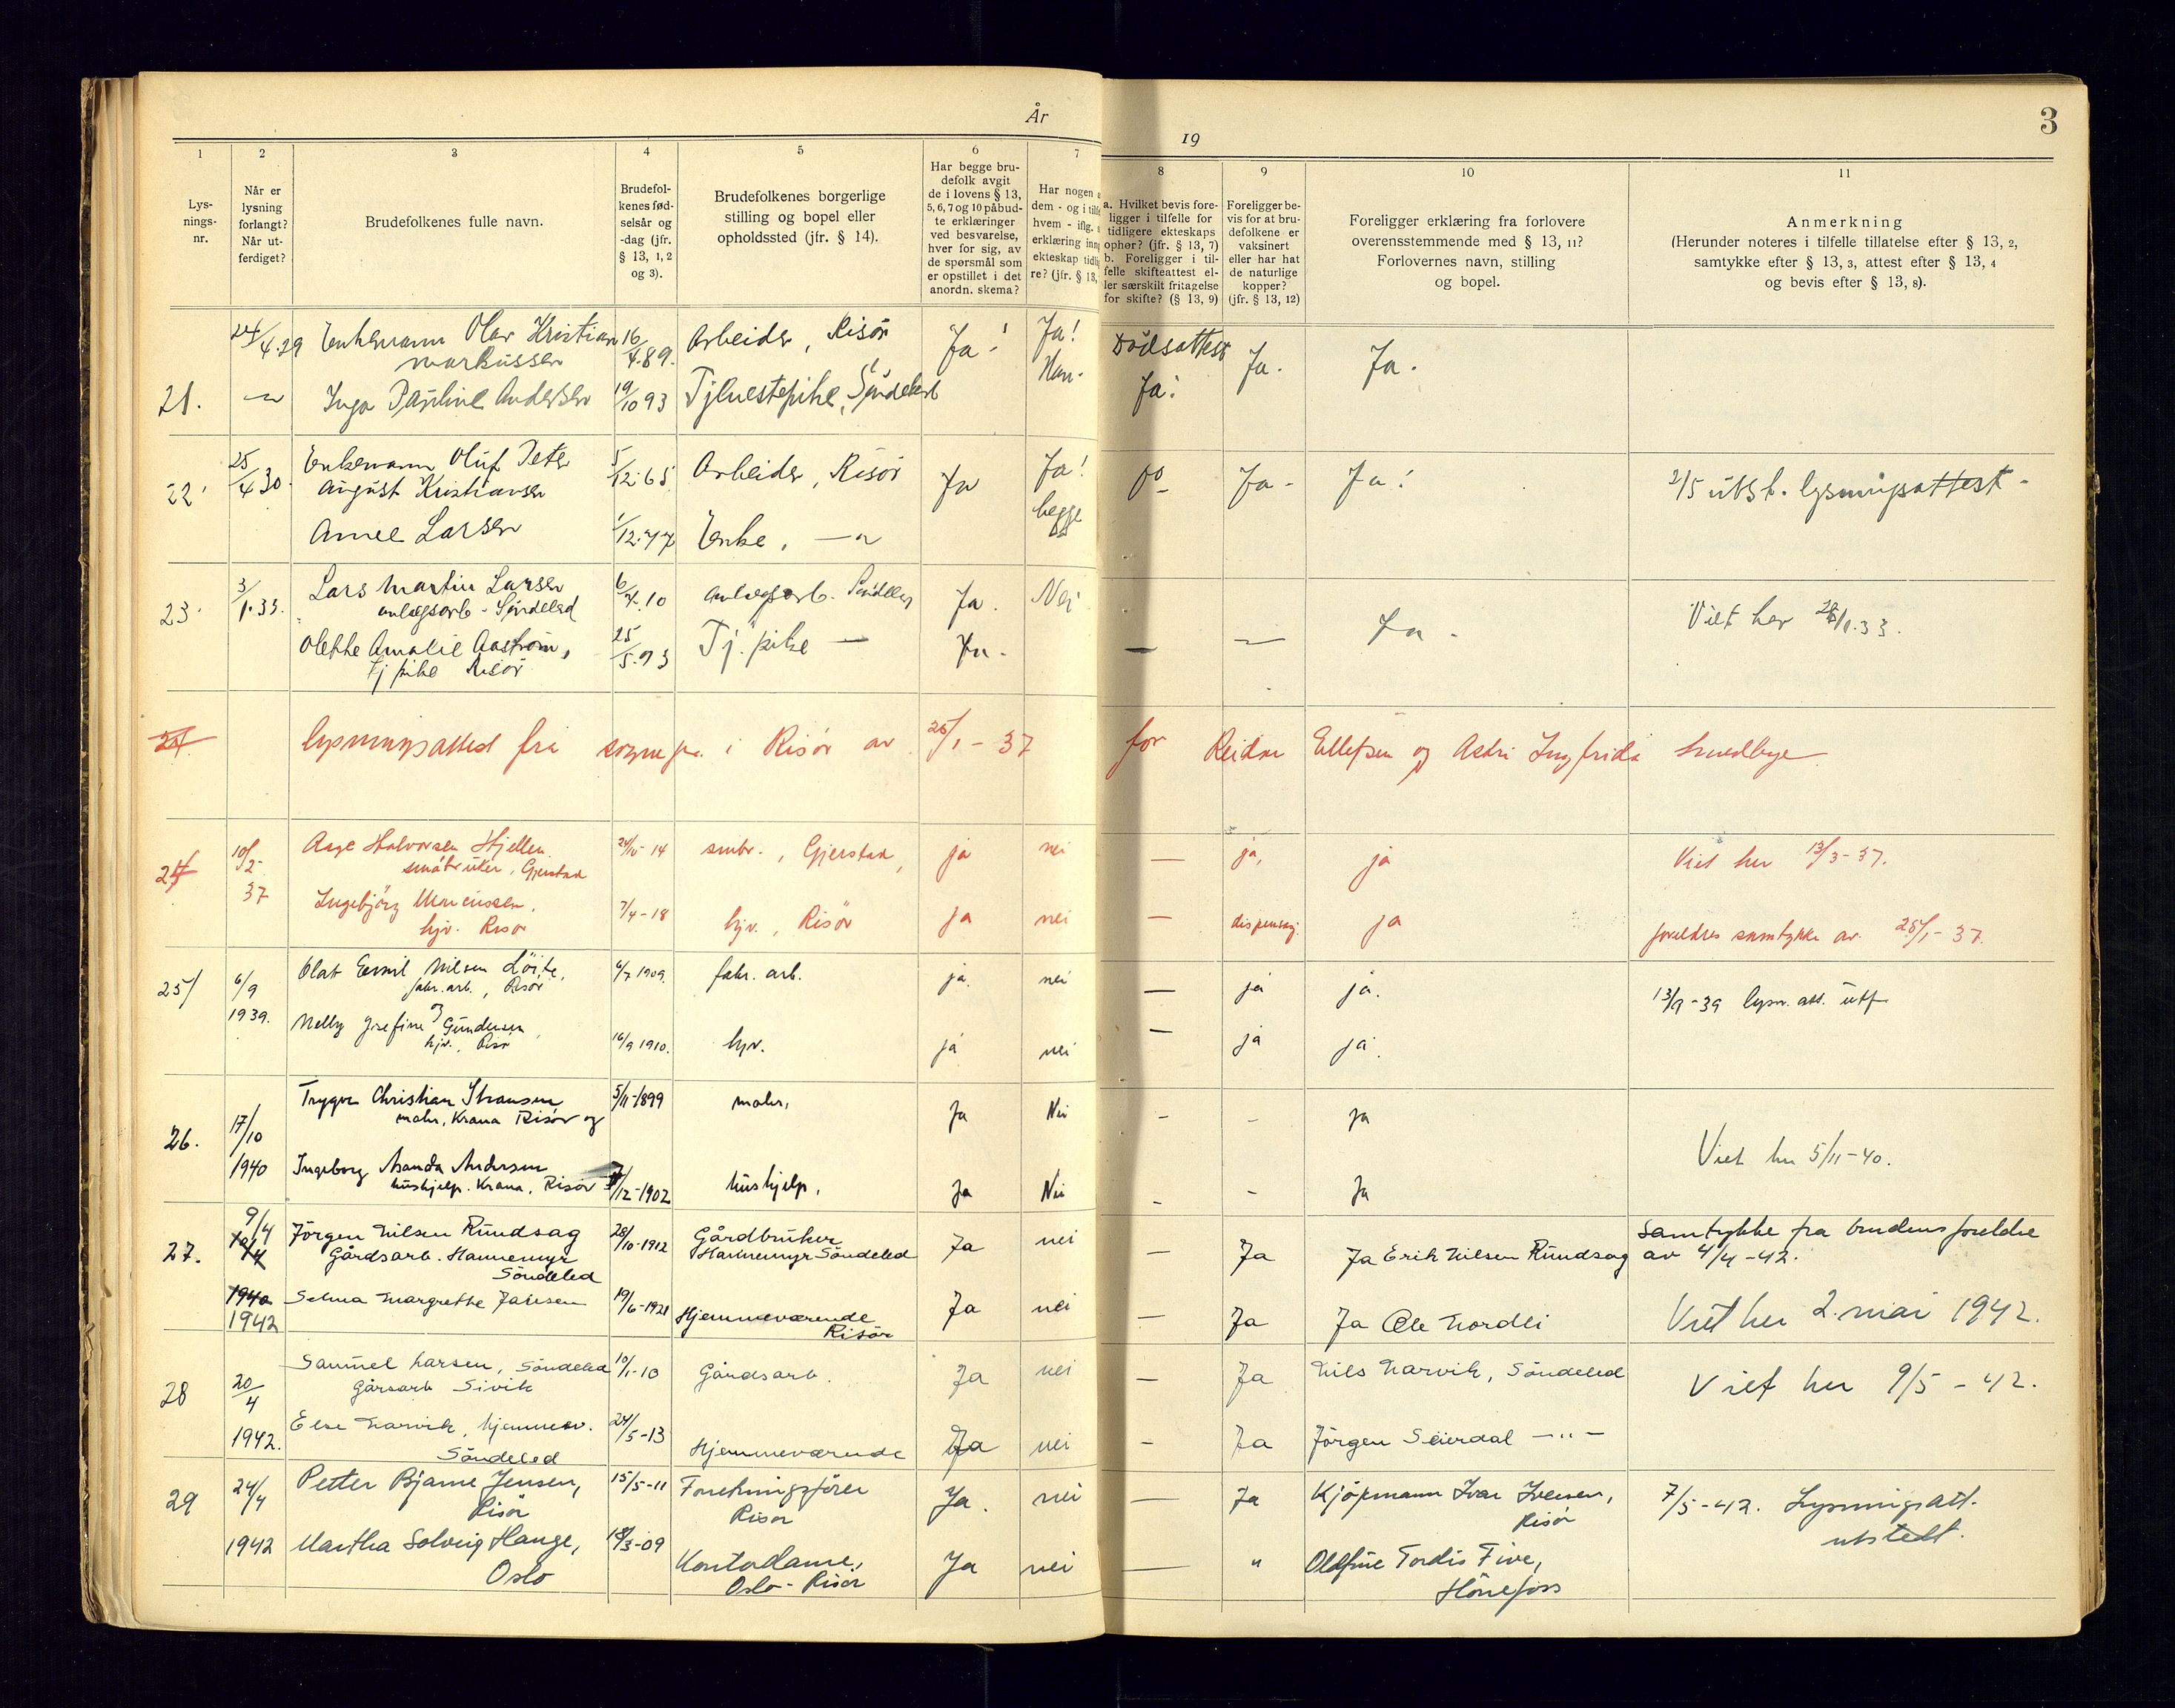 År
19
3
1
2
3
4
5
6
7
8
9
10
11
Lys-
nings-
nr.
Når er
lysning
forlangt?
Når ut-
ferdiget?
Brudefolkenes fulle navn.
Brudefol-
kenes fød-
selsår og
-dag (jfr.
§ 13, 1, 2
og 3).
Brudefolkenes borgerlige
stilling og bopel eller
opholdssted (jfr. § 14).
Har begge bru-
defolk avgit
de i lovens § 13,
5, 6, 7 og 10 påbud-
te erklæringer
ved besvarelse,
hver for sig, av
de spørsmål som
er opstillet i det
anordn. skema?
Har nogen a
dem - og i tilfe
hvem - iflg. a
erklæring inng
ekteskap tidli
re? (jfr. § 13,
a. Hvilket bevis fore-
ligger i tilfelle for
tidligere ekteskaps
ophør? (jfr. § 13, 7)
b. Foreligger i til-
felle skifteattest el-
ler særskilt fritagelse
for skifte? (§ 13, 9)
Foreligger be-
vis for at bru-
defolkene er
vaksinert
eller har hat
de naturlige
kopper?
(jfr. § 13, 12)
Foreligger erklæring fra forlovere
overensstemmende med § 13, 11?
Forlovernes navn, stilling
og bopel.
Anmerkning
(Herunder noteres i tilfelle tillatelse efter § 13, 2,
samtykke efter § 13, 3, attest efter § 13, 4
og bevis efter § 13, 8).
24/4.29 Enkemann Olav Kristian 16/4.89. Arbeider, Risör Ja! Ja! Dödsattest Ja. Ja.
Markussen Han. Ja!
21. Inga Pauline Andersen 19/10 93 Tjenestepike, Söndeled
25/4 30 Enkemann Oluf Peter 5/12.65 Arbeider, Risör Ja Ja! Ja Ja - Ja! 2/5 utst. lysningsattest -
22. August Kristiansen begge
Anne Larsen 1/12.77 Enke,
23. 3/1.33. Lars Martin Larsen 6/4.10 anlegsarb. Söndeled Ja. Nei - Ja - Viet her 28/1.33.
anlegsarb - Söndeled
Olette Amalie Aaström, 25/5.93 Tj. pike — Ja. — —
tj pike Risör
24 lysningsattest fra sogne pr. i Risör av 25/1 - 37 for Reidar Ellefsen og Astri Ingfrida Smedbye
24 10/2- Aage Halvorsen Hjellen 24/10-14 småbr., Gjerstad, ja nei — ja, ja Viet her 13/3-37.
37 småbruker, Gjerstad
Ingebjörg 7/4-18 hjv., Risör ja nei — dispensasj. ja foreldres samtykke av 25/1-37.
hjv. Risör
25/ 6/9 Olaf Emil Nilsen Löite, 6/7 1909. fabr. arb. ja. nei — ja ja. 13/9-39 lysn. att. utf
1939. fabr. arb., Risör
og
Nelly Josefine Gundersen 16/9 1910. hjv. ja nei — ja ja.
hjv., Risör
26. 17/10 Trygve Christian 5/11-1899 maler, Ja Nei - - Ja
1940 maler, Krana Risör og
Viet her 5/11-40.
Ingeborg Amanda Andersen /12-1902 hushjelp, Ja Nei - - Ja
hushjelp. Krana, Risör
27. 9/4 Jörgen Nilsen Rundsag 28/10-1912 Gårdbruker Ja nei — Ja Ja Erik Nilsen Rundsag Samtykke fra brudens foreldre
Gårdsarb. Hammemyr Hammemyr Söndeled av 4/4-42.
Söndeled
1940 Selma Margrethe Jansen 19/6-1921 Hjemmeværende Ja nei — Ja Ja Ole Nordli Viet her 2. mai 1942.
1942 Risör
28 20/4 Samuel Larsen, Söndeled 10/1-10 Gårdsarb. Ja nei — Ja Nils Narvik, Söndeled Viet her 9/5 - 42.
Gårsarb Sivik
1942. Else Narvik, hjemmev. 24/5-13 Hjemmeværende Ja nei - Ja Jörgen Seierdal —"—
Söndeled
29 24/4 Petter Bjarne Jensen, 15/5-11 Forretningsförer Ja. nei — Ja Kjöpmann Ivar Iversen, 7/5-42. Lysningsatt.
Risör Risör Risör utstedt.
1942 Martha Solveig Hauge, 18/3-09 Kontordame, Ja nei — " Oldfine Tordis Five,
Oslo Oslo - Risör Hönefoss